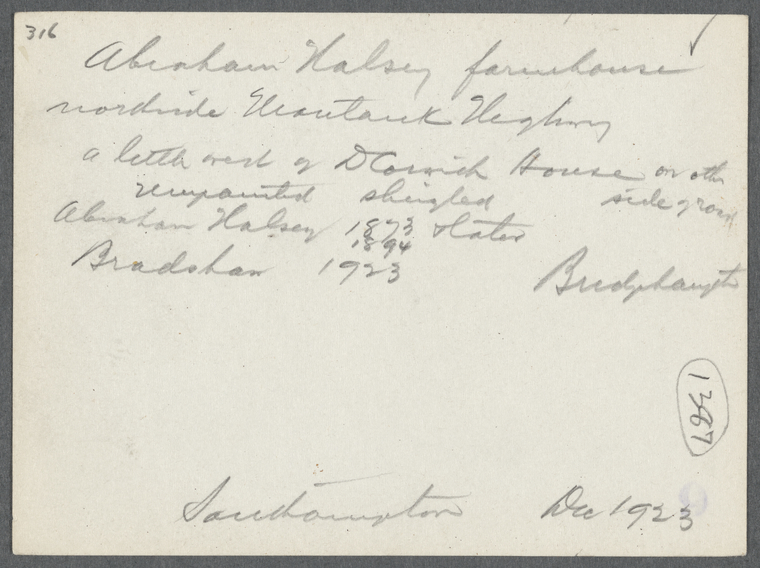 316
Abraham Halsey farmhouse
northside Montauk Highway
a little west of D Corwith House on other
unpainted shingled side of road
Abraham Halsey 1873 & later
1894
Bradshaw 1923
Bridgehampton
1387
Southampton Dec 1923